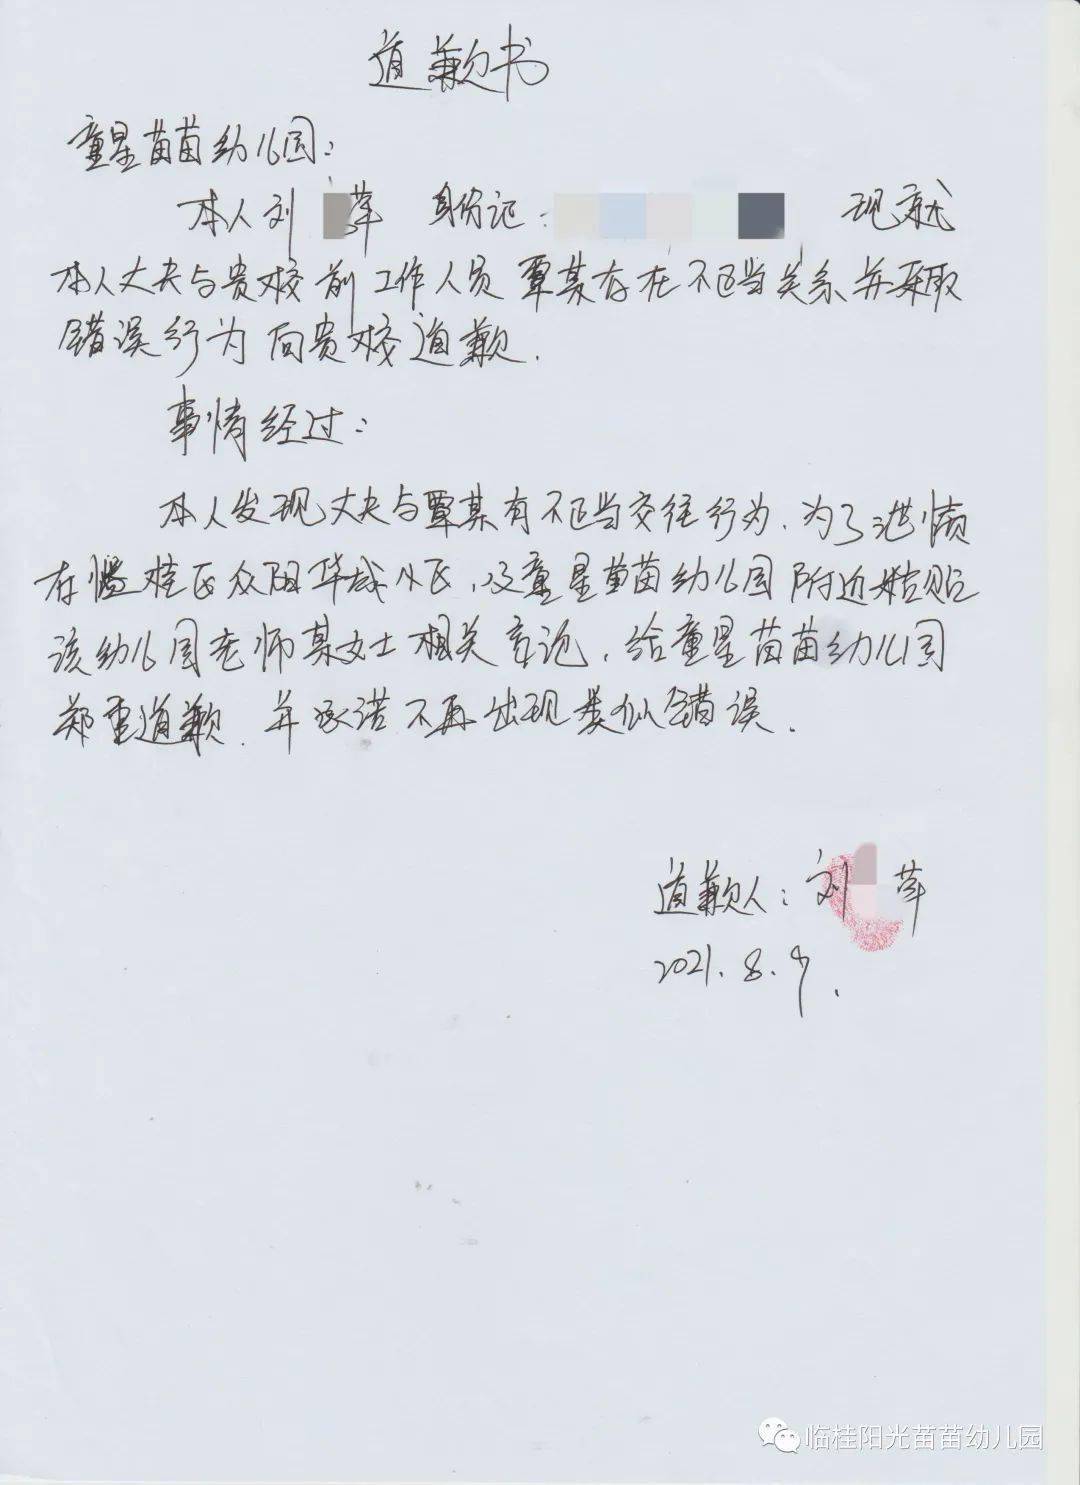 道歉书
童星苗苗幼儿园：
本人刘 萍 身份证： 现就
本人丈夫与贵校前工作人员覃某存在不正当关系并采取
错误行为向贵校道歉.
事情经过：
本人发现丈夫与覃某有不正当交往行为.为了泄愤
在临桂区众阳华城小区,及童星苗苗幼儿园附近粘贴
该幼儿园老师某女士相关言论.给童星苗苗幼儿园
郑重道歉.并承诺不再出现类似错误.
道歉人：刘 萍
2021.8.9.
临桂阳光苗苗幼儿园